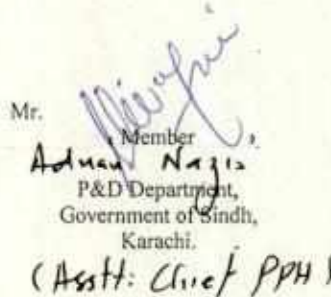 Mr.
Member
Adnan
P&D Department,
Government of Sindh,
Karachi.
(Asstt: Chief PPH)